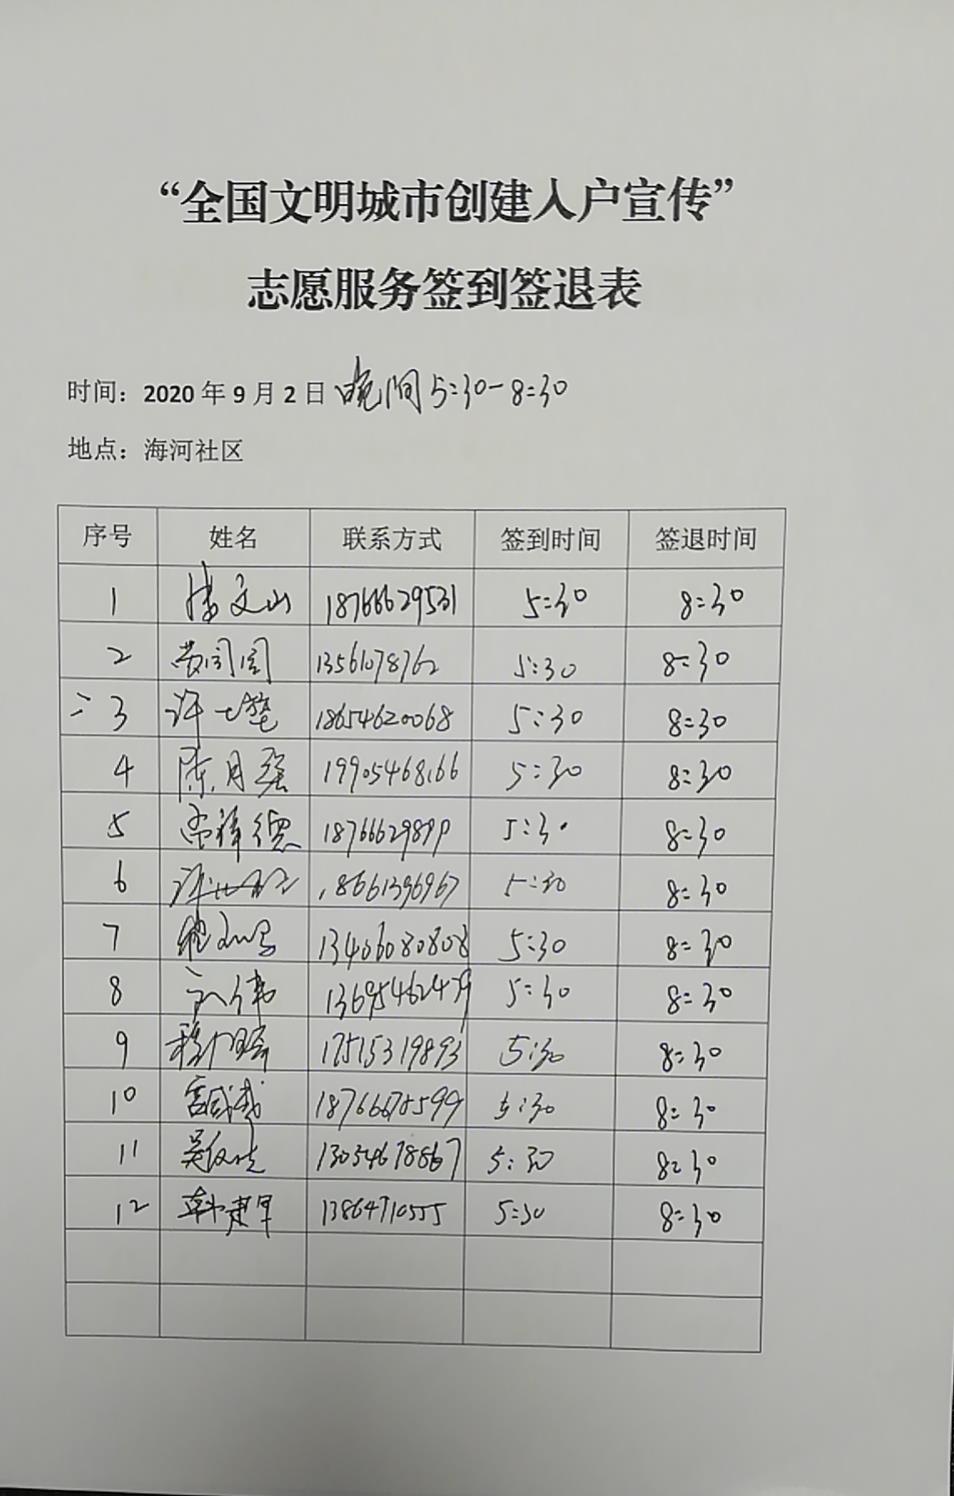 “全国文明城市创建入户宣传”
志愿服务签到签退表
时间：2020年9月2日 晚间5:30-8:30
地点：海河社区
序号 姓名 联系方式 签到时间 签退时间
1 文山 18766629531 5:30 8:30
2 13561078762 5:30 8:30
3 许 18654620068 5:30 8:30
4 陈月强 19905468166 5:30 8:30
5 德 18766629899 5:30 8:30
6 18661396967 5:30 8:30
7 13406080808 5:30 8:30
8 伟 13695462479 5:30 8:30
9 17515319893 5:30 8:30
10 5:30 8:30
11 吴 13054678867 5:30 8:30
12 韩建军 13864710555 5:30 8:30